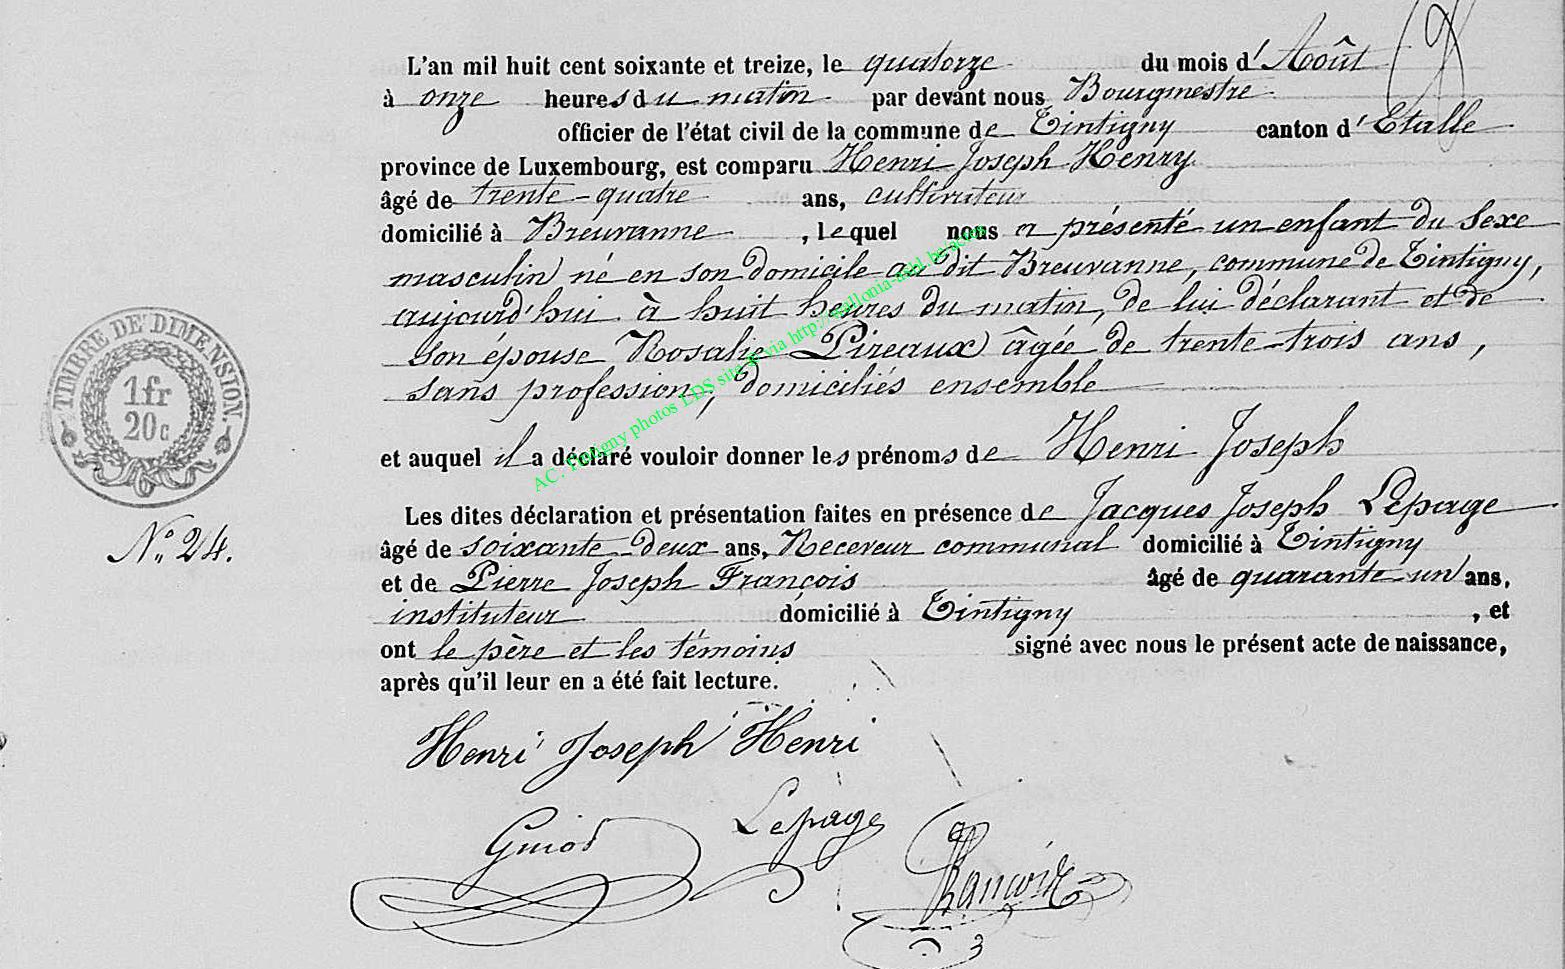 L'an mil huit cent soixante et treize, le quatorze du mois d'Août
à onze heures du matin par devant nous Bourgmestre
officier de l'état civil de la commune de Tintigny canton d'Etalle
province de Luxembourg, est comparu Henri Joseph Henry
âgé de trente-quatre ans, cultivateur
domicilié à Breuvanne, lequel nous a présenté un enfant du sexe
masculin né en son domicile au dit Breuvanne, commune de Tintigny,
aujourd'hui à huit heures du matin, de lui déclarant et de
son épouse Rosalie Pireaux âgée de trente-trois ans,
sans profession, domiciliés ensemble
et auquel il a déclaré vouloir donner les prénoms de Henri Joseph
Les dites déclaration et présentation faites en présence de Jacques Joseph Lepage
âgé de soixante-deux ans, Receveur communal domicilié à Tintigny
et de Pierre Joseph François âgé de quarante-un ans,
instituteur domicilié à Tintigny, et
ont le père et les témoins signé avec nous le présent acte de naissance,
après qu'il leur en a été fait lecture.
Henri Joseph Henri
Lepage
TIMBRE DE DIMENSION.
1fr
20c
No 24.
AC. Tintigny photos LDS site @ via http://wallonia-asbl.be/actes